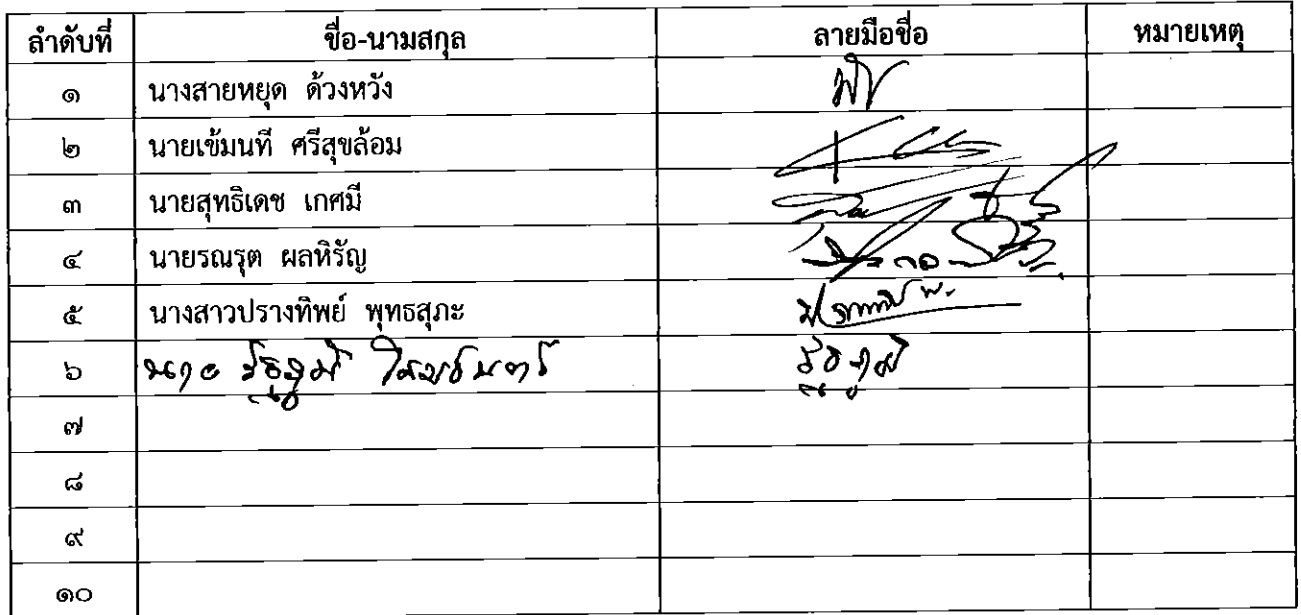 ลำดับที่ ชื่อ-นามสกุล ลายมือชื่อ หมายเหตุ
๑ นางสายหยุด ด้วงหวัง
๒ นายเข้มนที ศรีสุขล้อม
๓ นายสุทธิเดช เกศมี
๔ นายรณรุต ผลหิรัญ
๕ นางสาวปรางทิพย์ พุทธสุภะ
๖ นาย
๗
๘
๙
๑๐